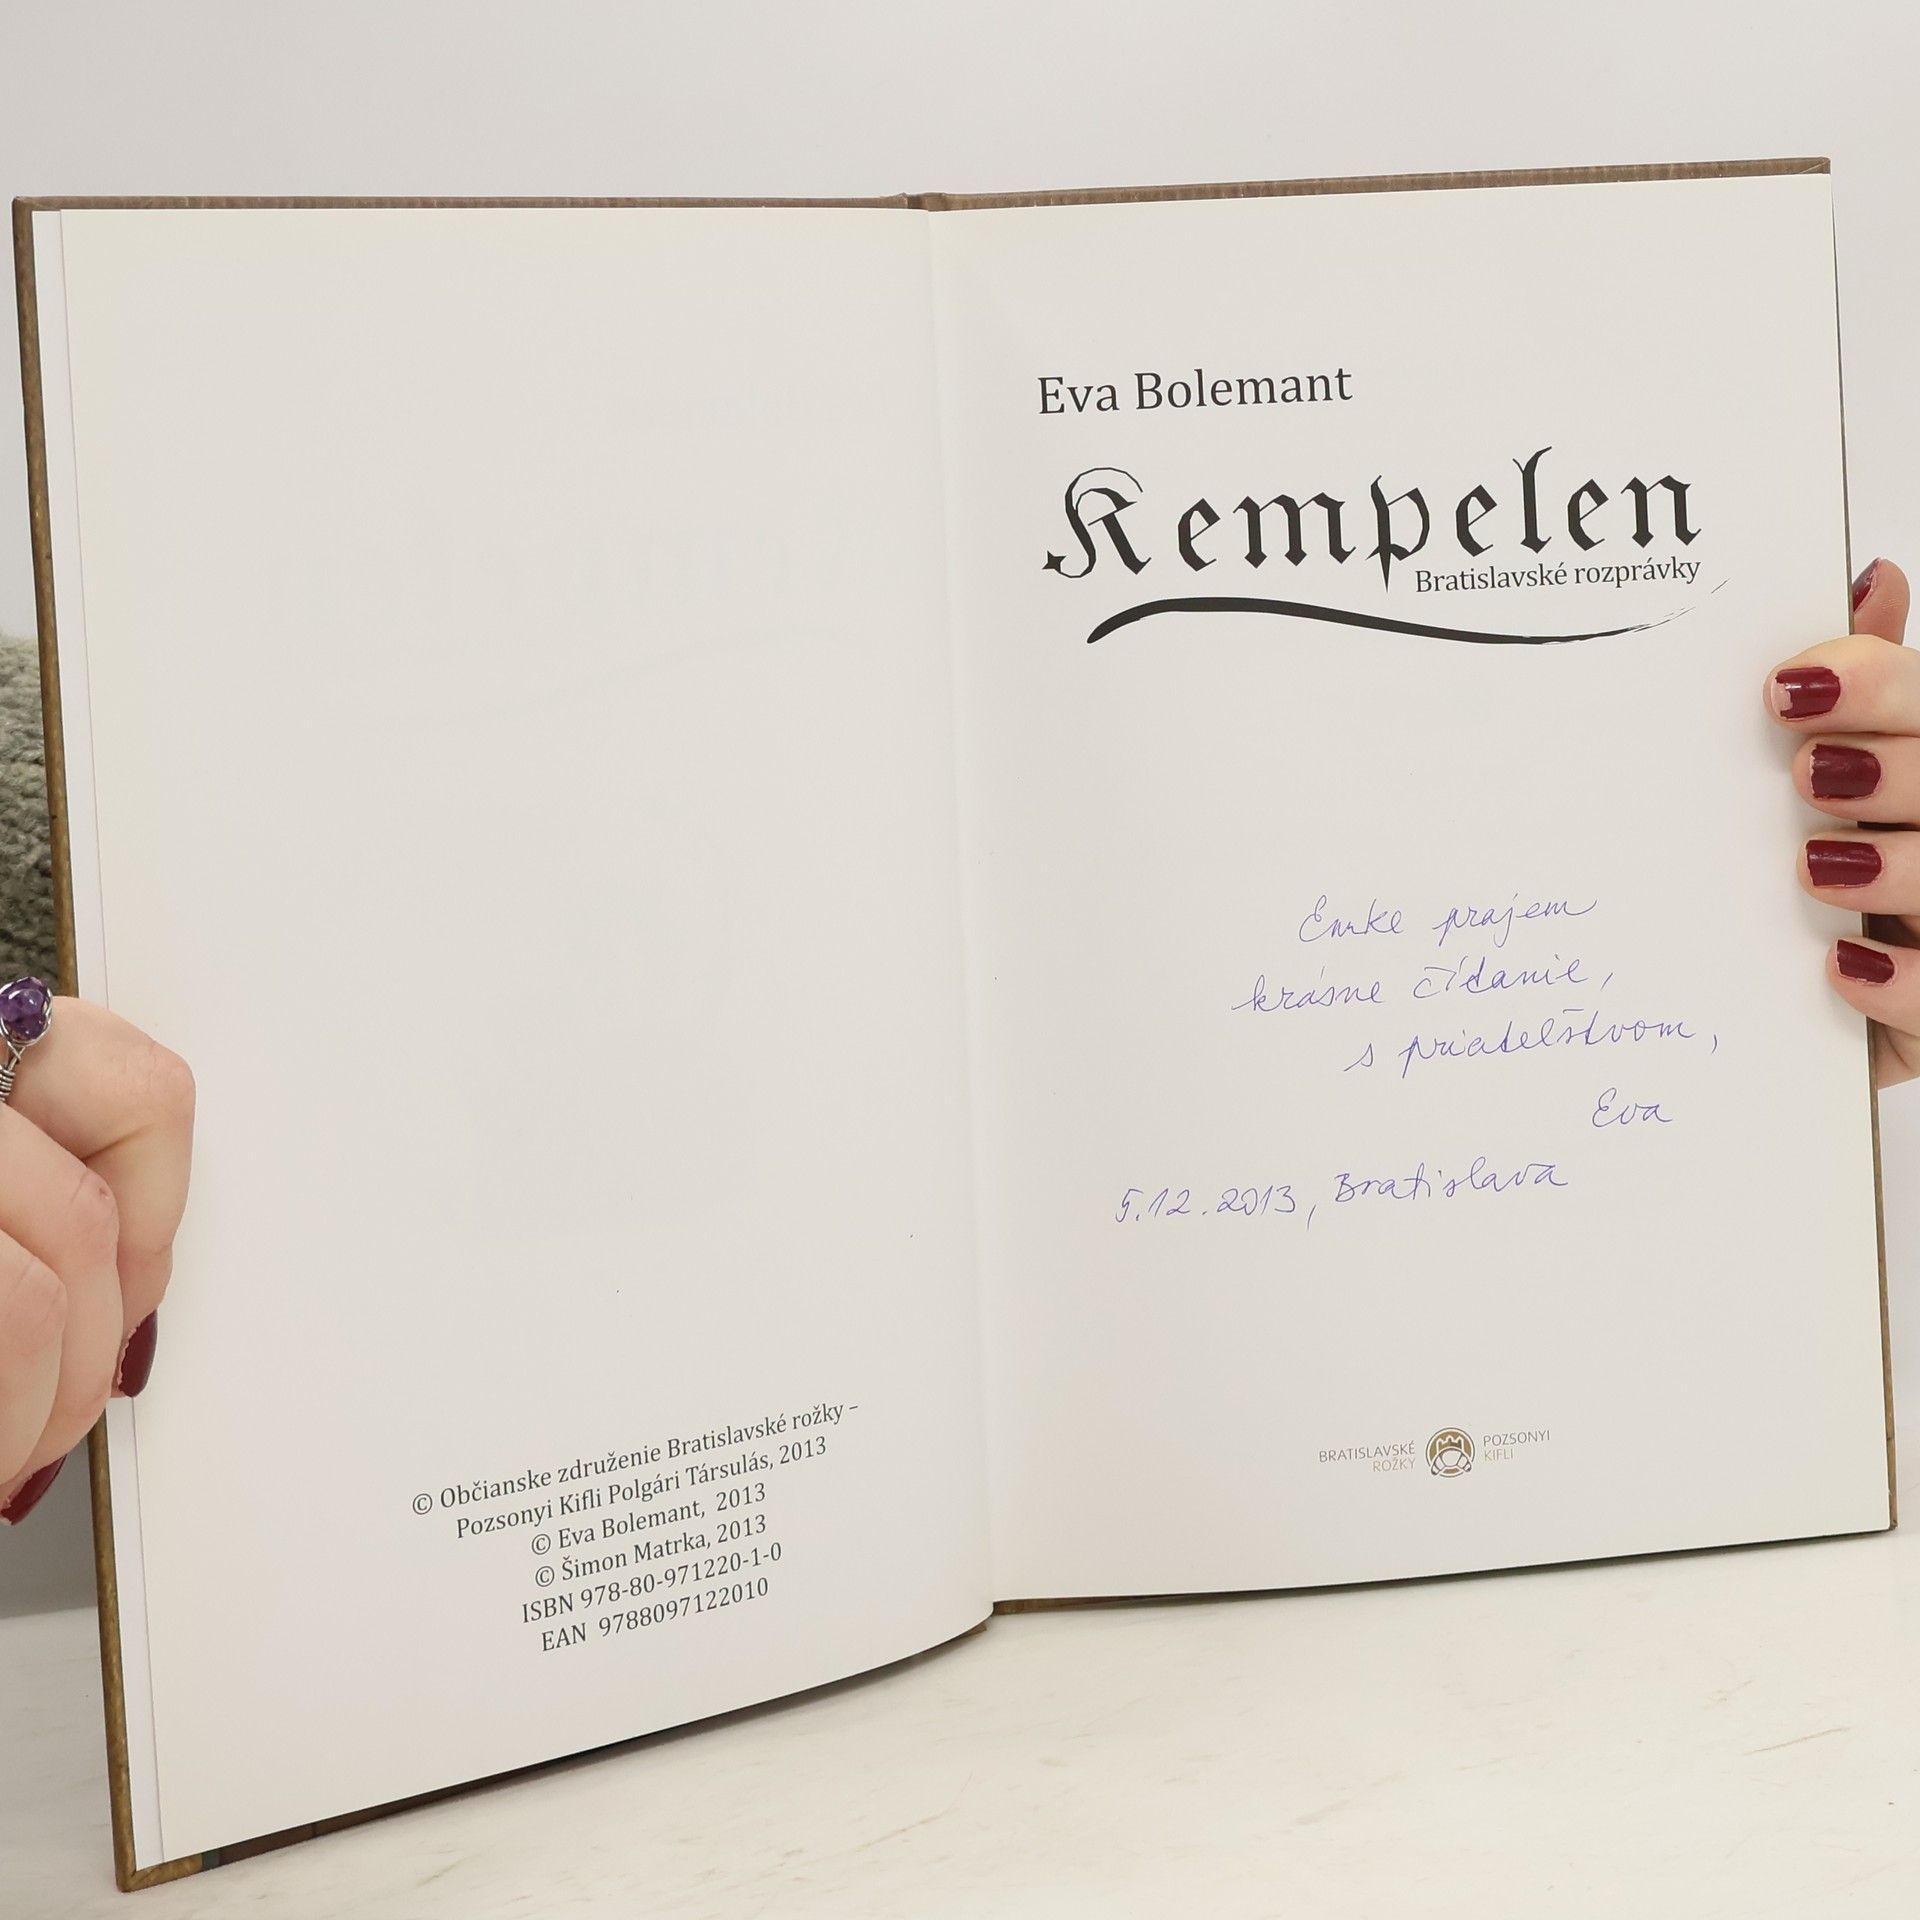 © Občianske združenie Bratislavské rožky –
Pozsonyi Kifli Polgári Társulás, 2013
© Eva Bolemant, 2013
© Šimon Matrka, 2013
ISBN 978-80-971220-1-0
EAN 9788097122010
Eva Bolemant
Kempelen
Bratislavské rozprávky
Emke prajem
krásne čítanie,
s priatelstvom,
Eva
5.12.2013, Bratislava
BRATISLAVSKÉ
ROŽKY
POZSONYI
KIFLI